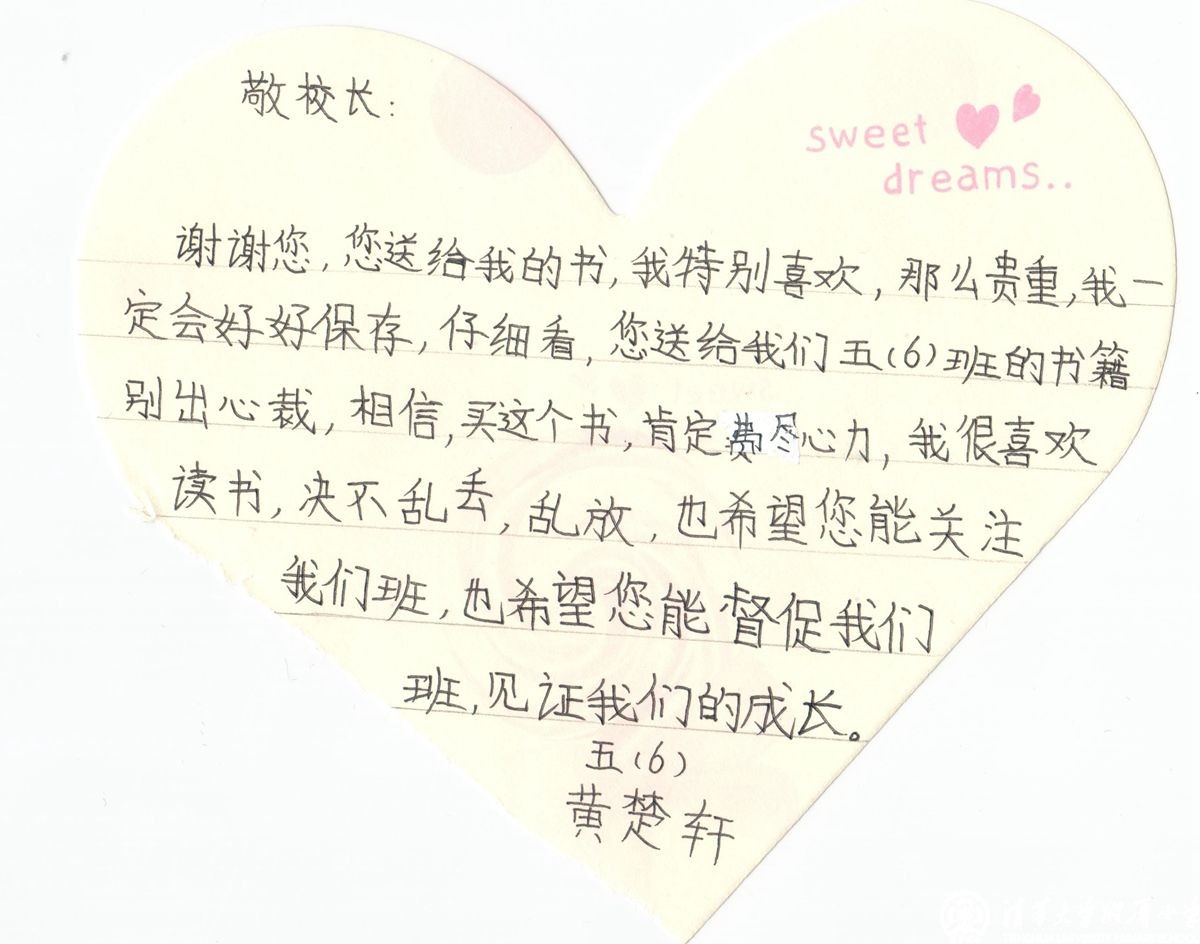 敬校长:
sweet
dreams..
谢谢您,您送给我的书,我特别喜欢,那么贵重,我一
定会好好保存,仔细看,您送给我们五(6)班的书籍
别出心裁,相信,买这个书,肯定费尽心力,我很喜欢
读书,决不乱丢,乱放,也希望您能关注
我们班,也希望您能督促我们
班,见证我们的成长。
五(6)
黄楚轩